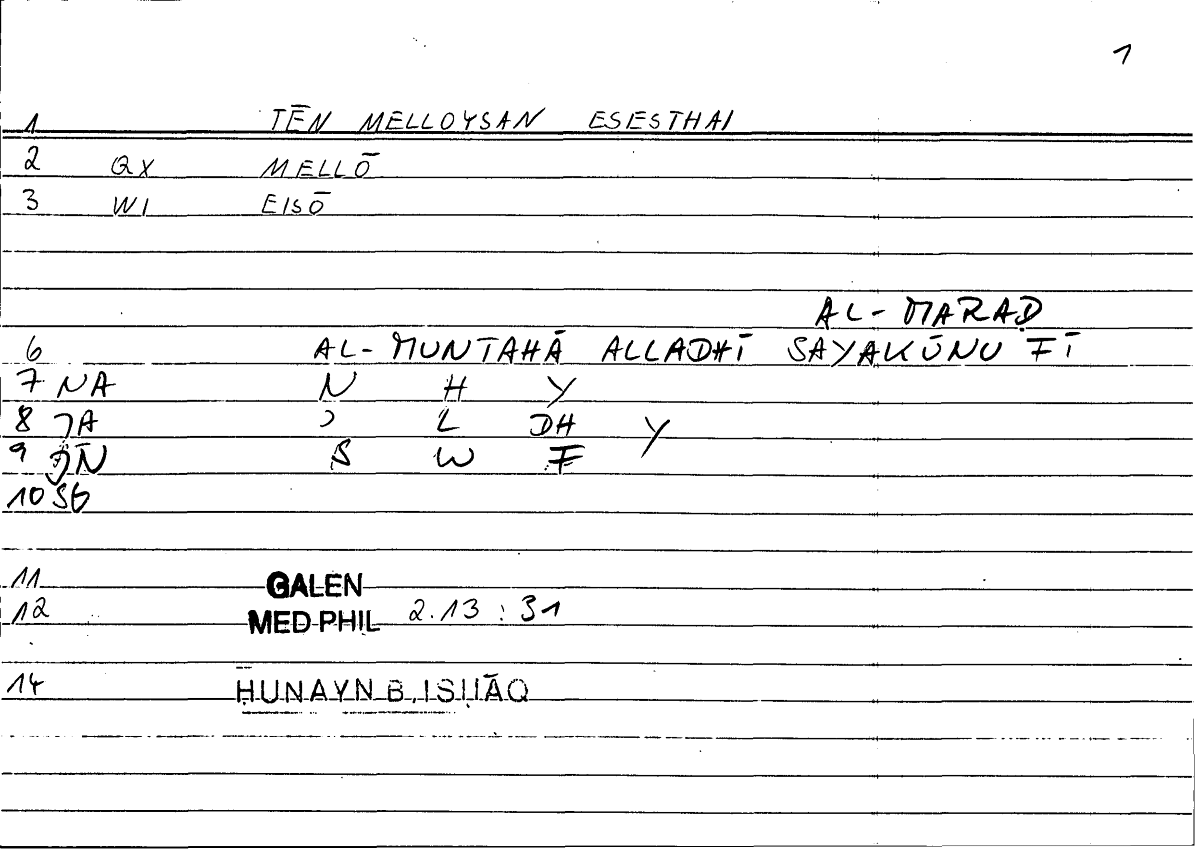 1
1 TĒN MELLOYSAN ESESTHAI
2 QX MELLŌ
3 WI EISŌ
AL-MARAḌ
6 AL-MUNTAHĀ ALLADHĪ SAYAKŪNU FĪ
7 NA N H Y
8 JA ʾ L DH Y
9 S W F
10 SG
11 GALEN
12 MED PHIL 2.13 : 31
14 ḤUNAYN B. ISḤĀQ